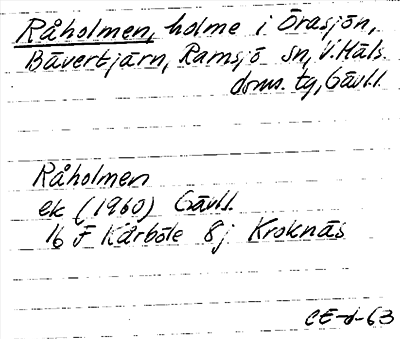 Råholmen, holme i Öråsjön,
Bävertjärn, Ramsjö sn, V. Häls.
doms. tg, Gävl.l.
Råholmen
ek (1960) Gävl.l.
16 F Kårböle 8j Kroknäs
CE-d-63